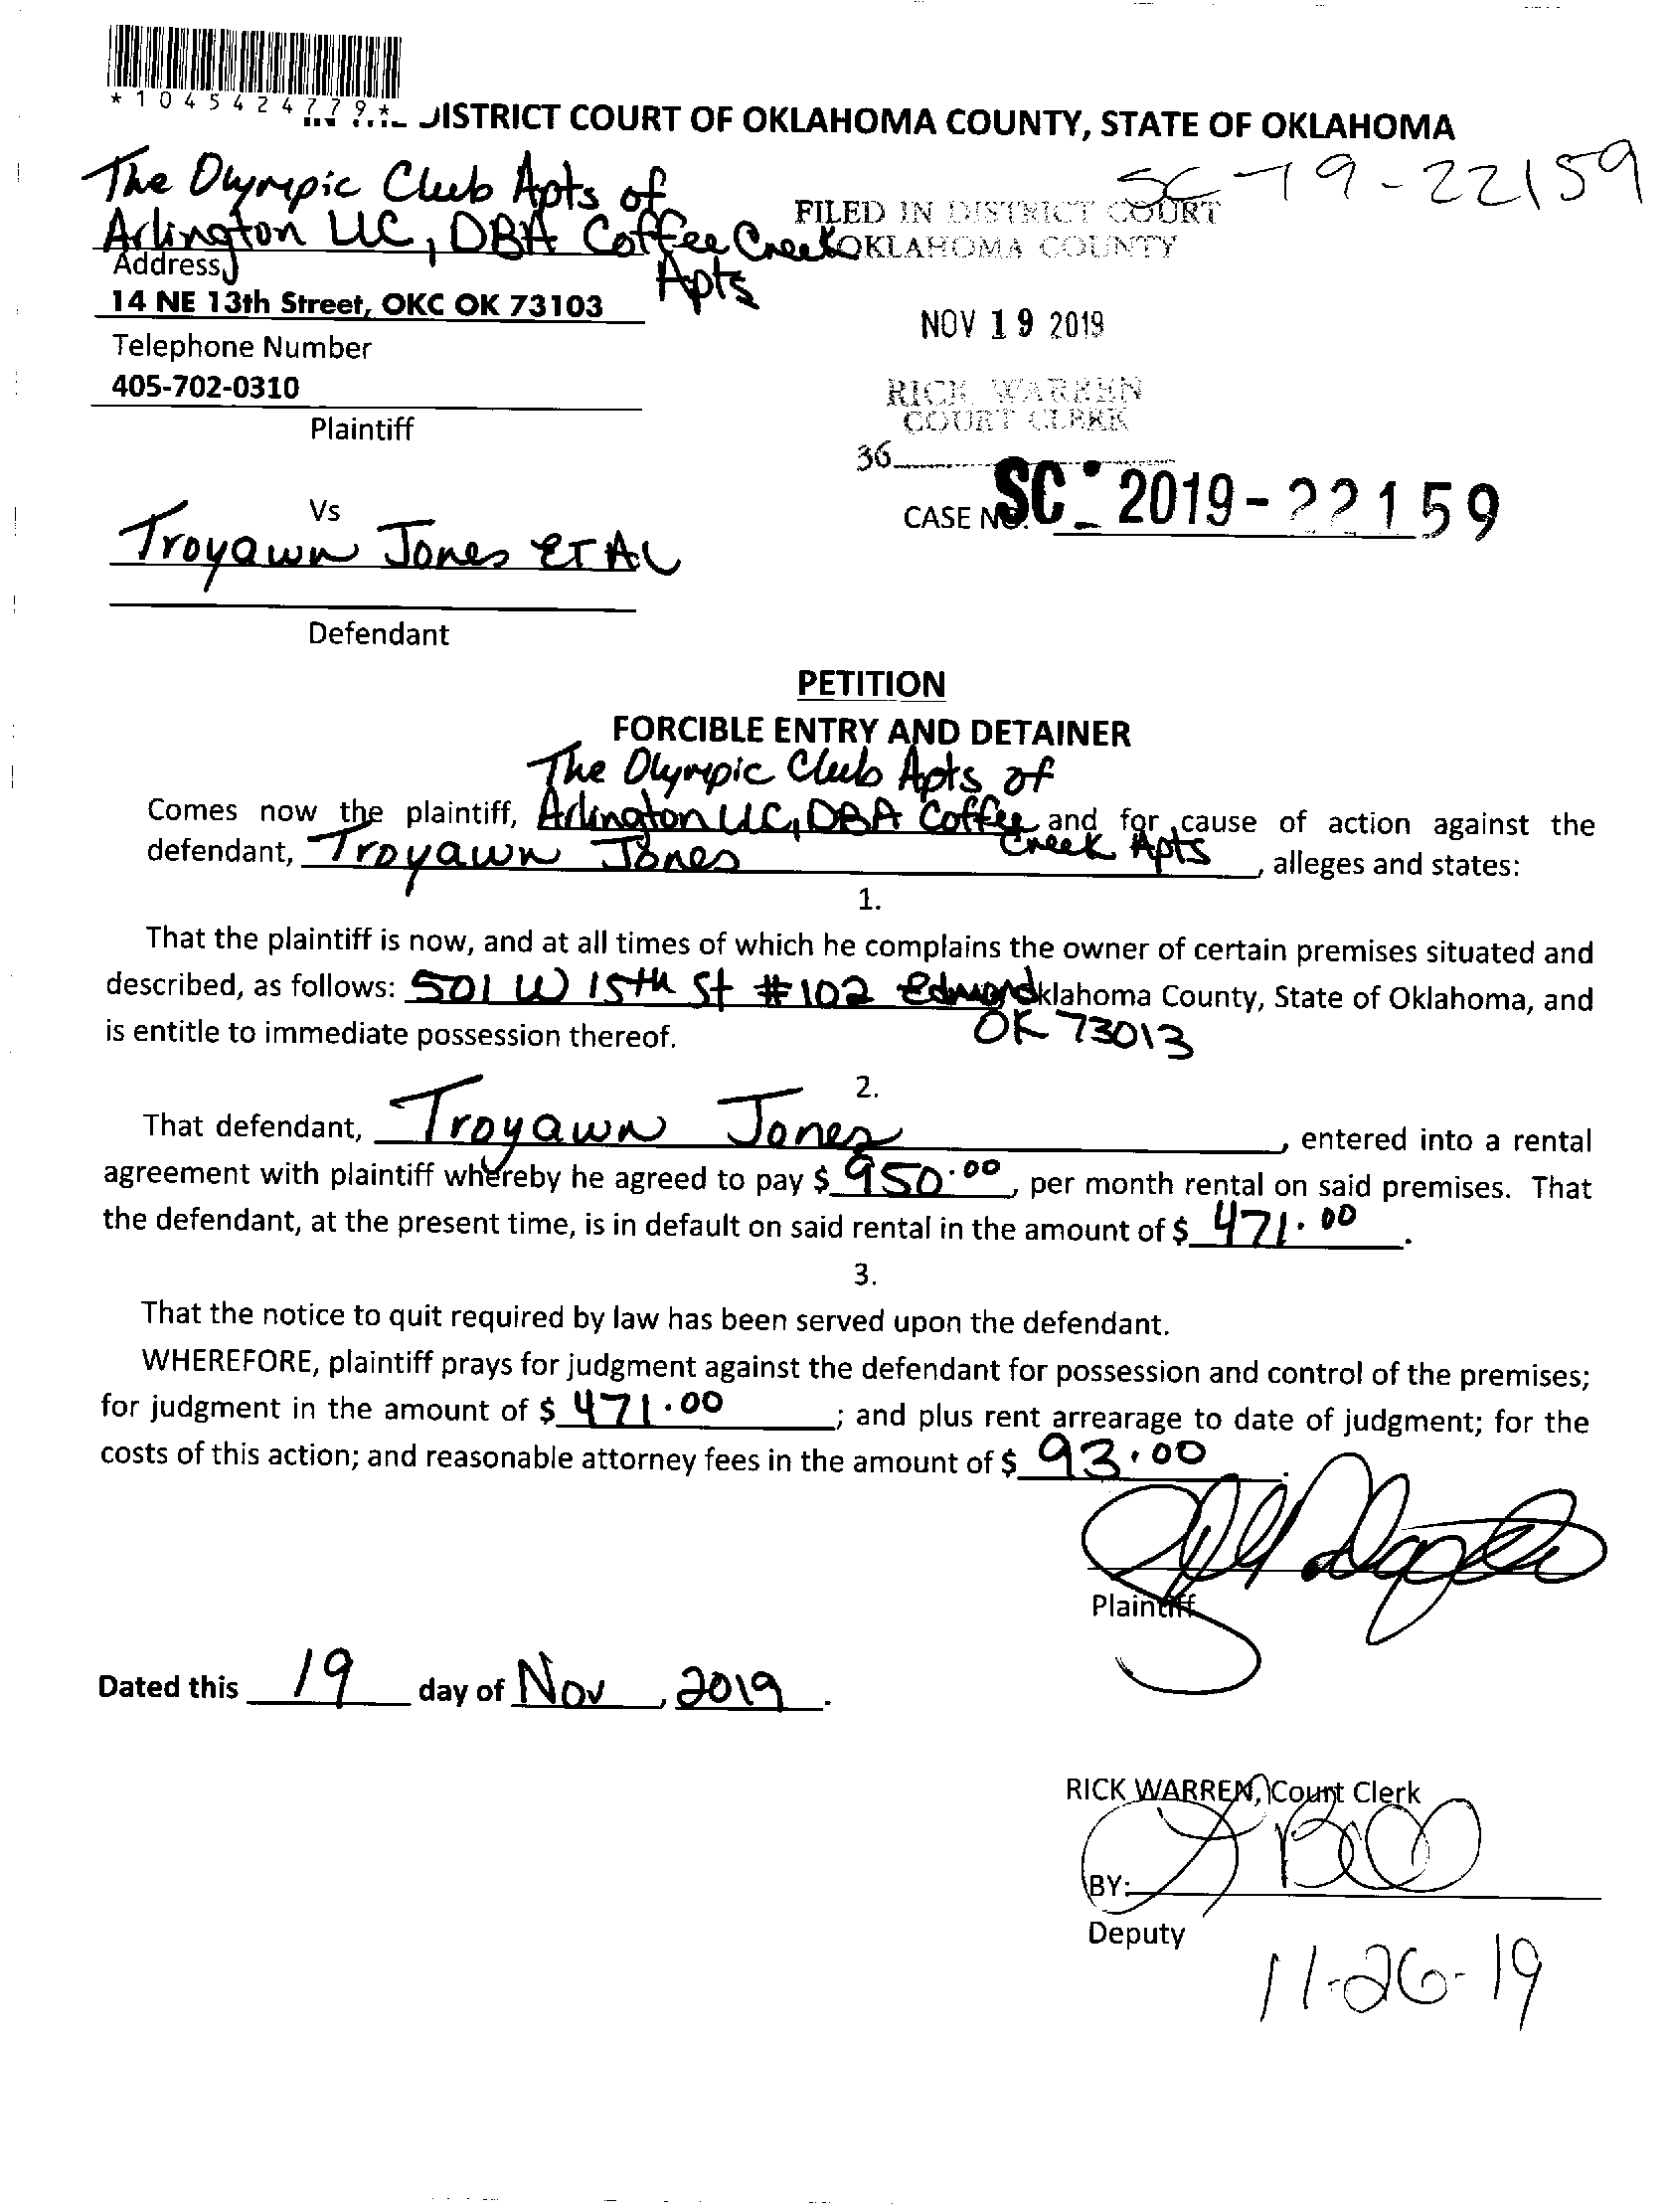 *1045424779*
DISTRICT COURT OF OKLAHOMA COUNTY, STATE OF OKLAHOMA
SC-19-22159
The Olympic Club Apts of
Arlington LLC, DBA Coffee Creek
Apts
FILED IN DISTRICT COURT
OKLAHOMA COUNTY
Address
14 NE 13th Street, OKC OK 73103
NOV 19 2019
Telephone Number
405-702-0310
RICK WARREN
COURT CLERK
Plaintiff
36
Vs
CASE NO. SC-2019-22159
Troyawn Jones ET AL
Defendant
PETITION
FORCIBLE ENTRY AND DETAINER
The Olympic Club Apts of
Comes now the plaintiff, Arlington LLC, DBA Coffee and for cause of action against the
Creek Apts
defendant, Troyawn Jones, alleges and states:
1.
That the plaintiff is now, and at all times of which he complains the owner of certain premises situated and
described, as follows: 501 W 15th St #102 Edmond klahoma County, State of Oklahoma, and
OK 73013
is entitle to immediate possession thereof.
2.
That defendant, Troyawn Jones, entered into a rental
agreement with plaintiff whereby he agreed to pay $ 950.00, per month rental on said premises. That
the defendant, at the present time, is in default on said rental in the amount of $ 471.00.
3.
That the notice to quit required by law has been served upon the defendant.
WHEREFORE, plaintiff prays for judgment against the defendant for possession and control of the premises;
for judgment in the amount of $ 471.00; and plus rent arrearage to date of judgment; for the
costs of this action; and reasonable attorney fees in the amount of $ 93.00.
Plaintiff
Dated this 19 day of Nov, 2019.
RICK WARREN, Court Clerk
BY:
Deputy
11-26-19